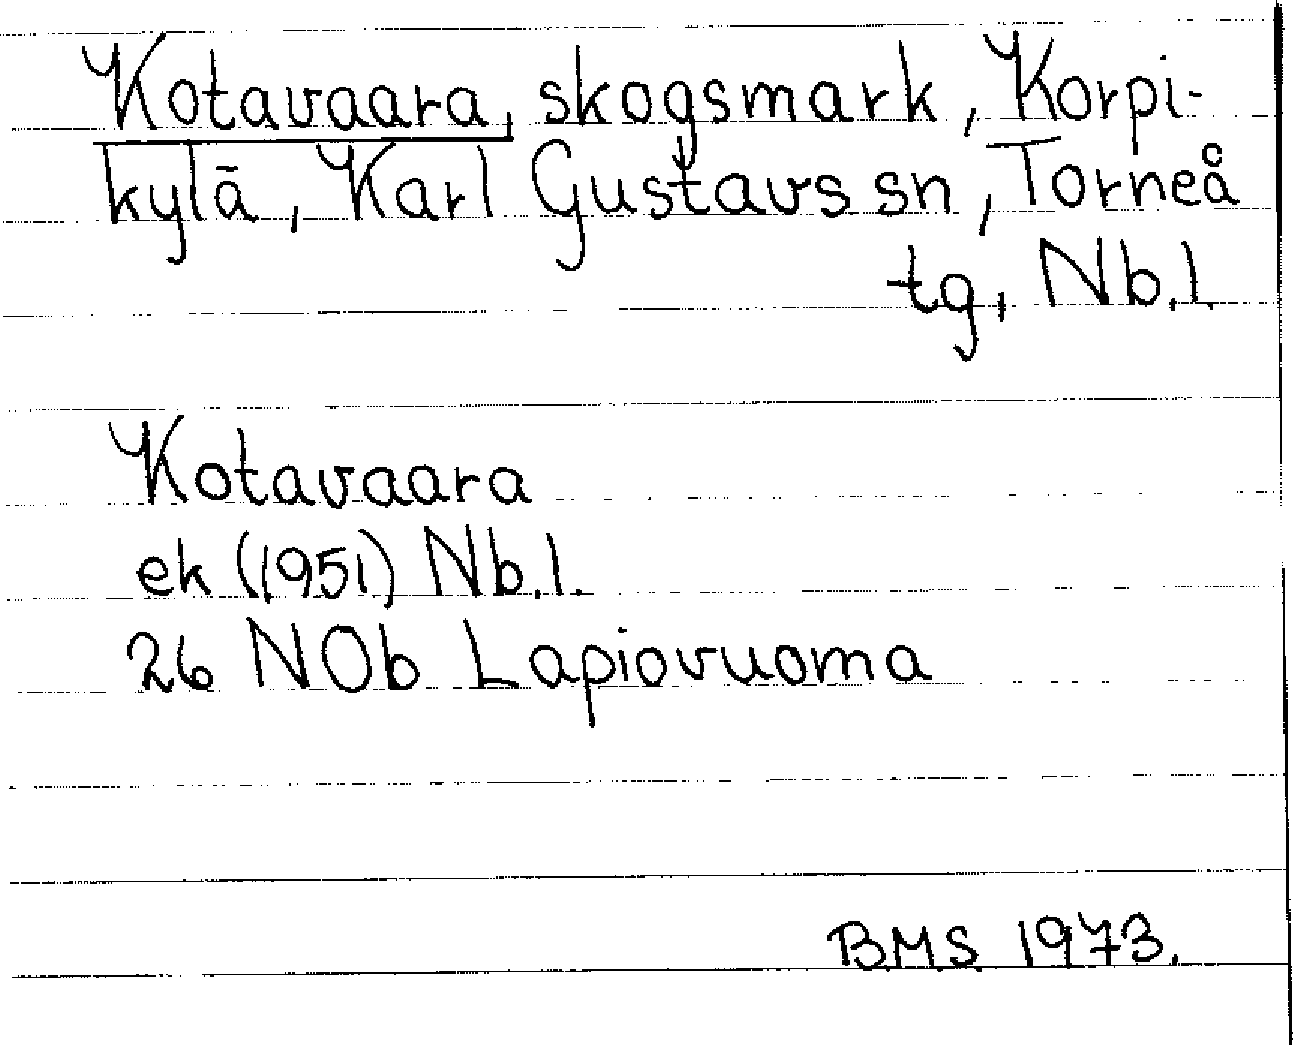 Kotavaara, skogsmark, Korpi-
kylä, Karl Gustavs sn, Torneå
tg, Nb.l.
Kotavaara
ek (1951) Nb.l.
26 NOb Lapiovuoma
BMS 1973.